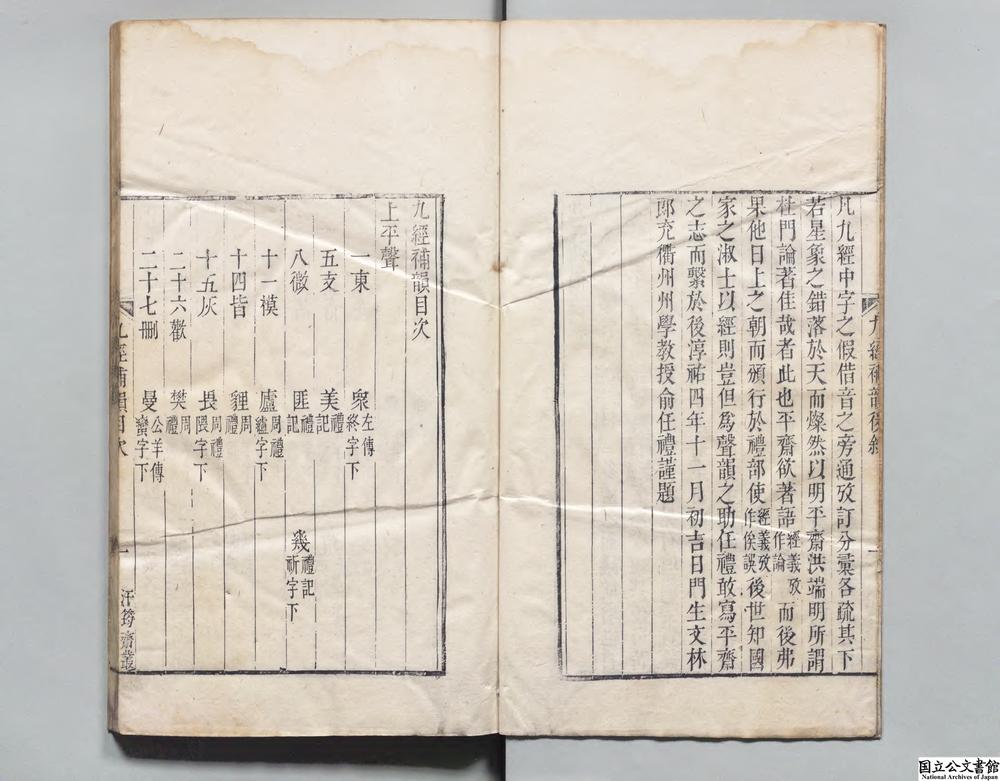 凡九經中字之假借音之旁通攷訂分彚各疏其下
若星象之錯落於天而燦然以明平齋洪端明所謂
杜門論著佳哉者此也平齋欲著語經義攷作論而後弗
果他日上之朝而頒行於禮部使經義攷作俟誤後世知國
家之淑士以經則豈但爲聲韻之助任禮敢寫平齋
之志而繫於後淳祐四年十一月初吉日門生文林
郎充衢州州學教授俞任禮謹題
九經補韻後
一
九經補韻目次
上平聲
一東 衆左傳終字下
五支 美禮記
八微 匪禮記 幾禮記祈字下
十一模 廬周禮纑字下
十四皆 貍周禮
十五灰 長周禮隈字下
二十六歡 樊周禮
二十七刪 曼公羊傳蠻字下
九經補韻目次
一
汗筠齋叢
国立公文書館
National Archives of Japan